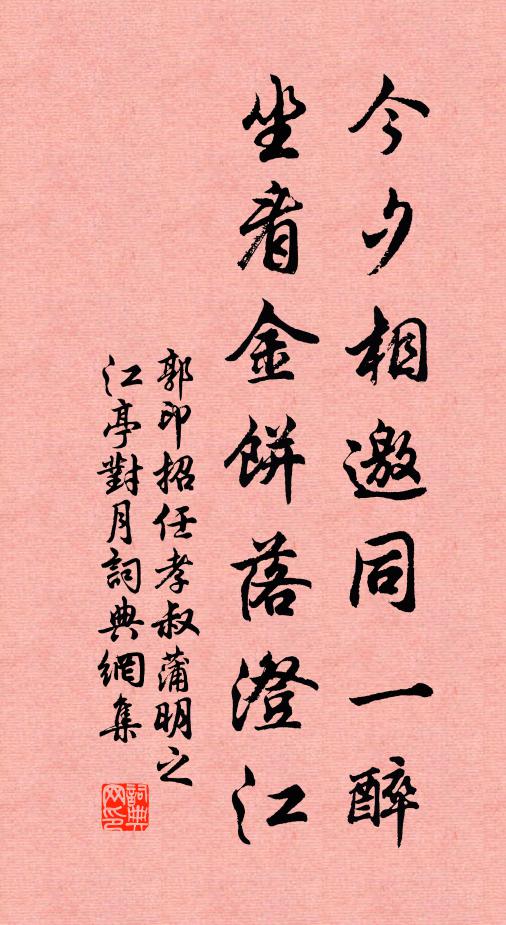 今夕相邀同一醉
坐看金餅落澄江
郭印招任孝叔蒲明之
江亭對月詞典網集
詞典
网印